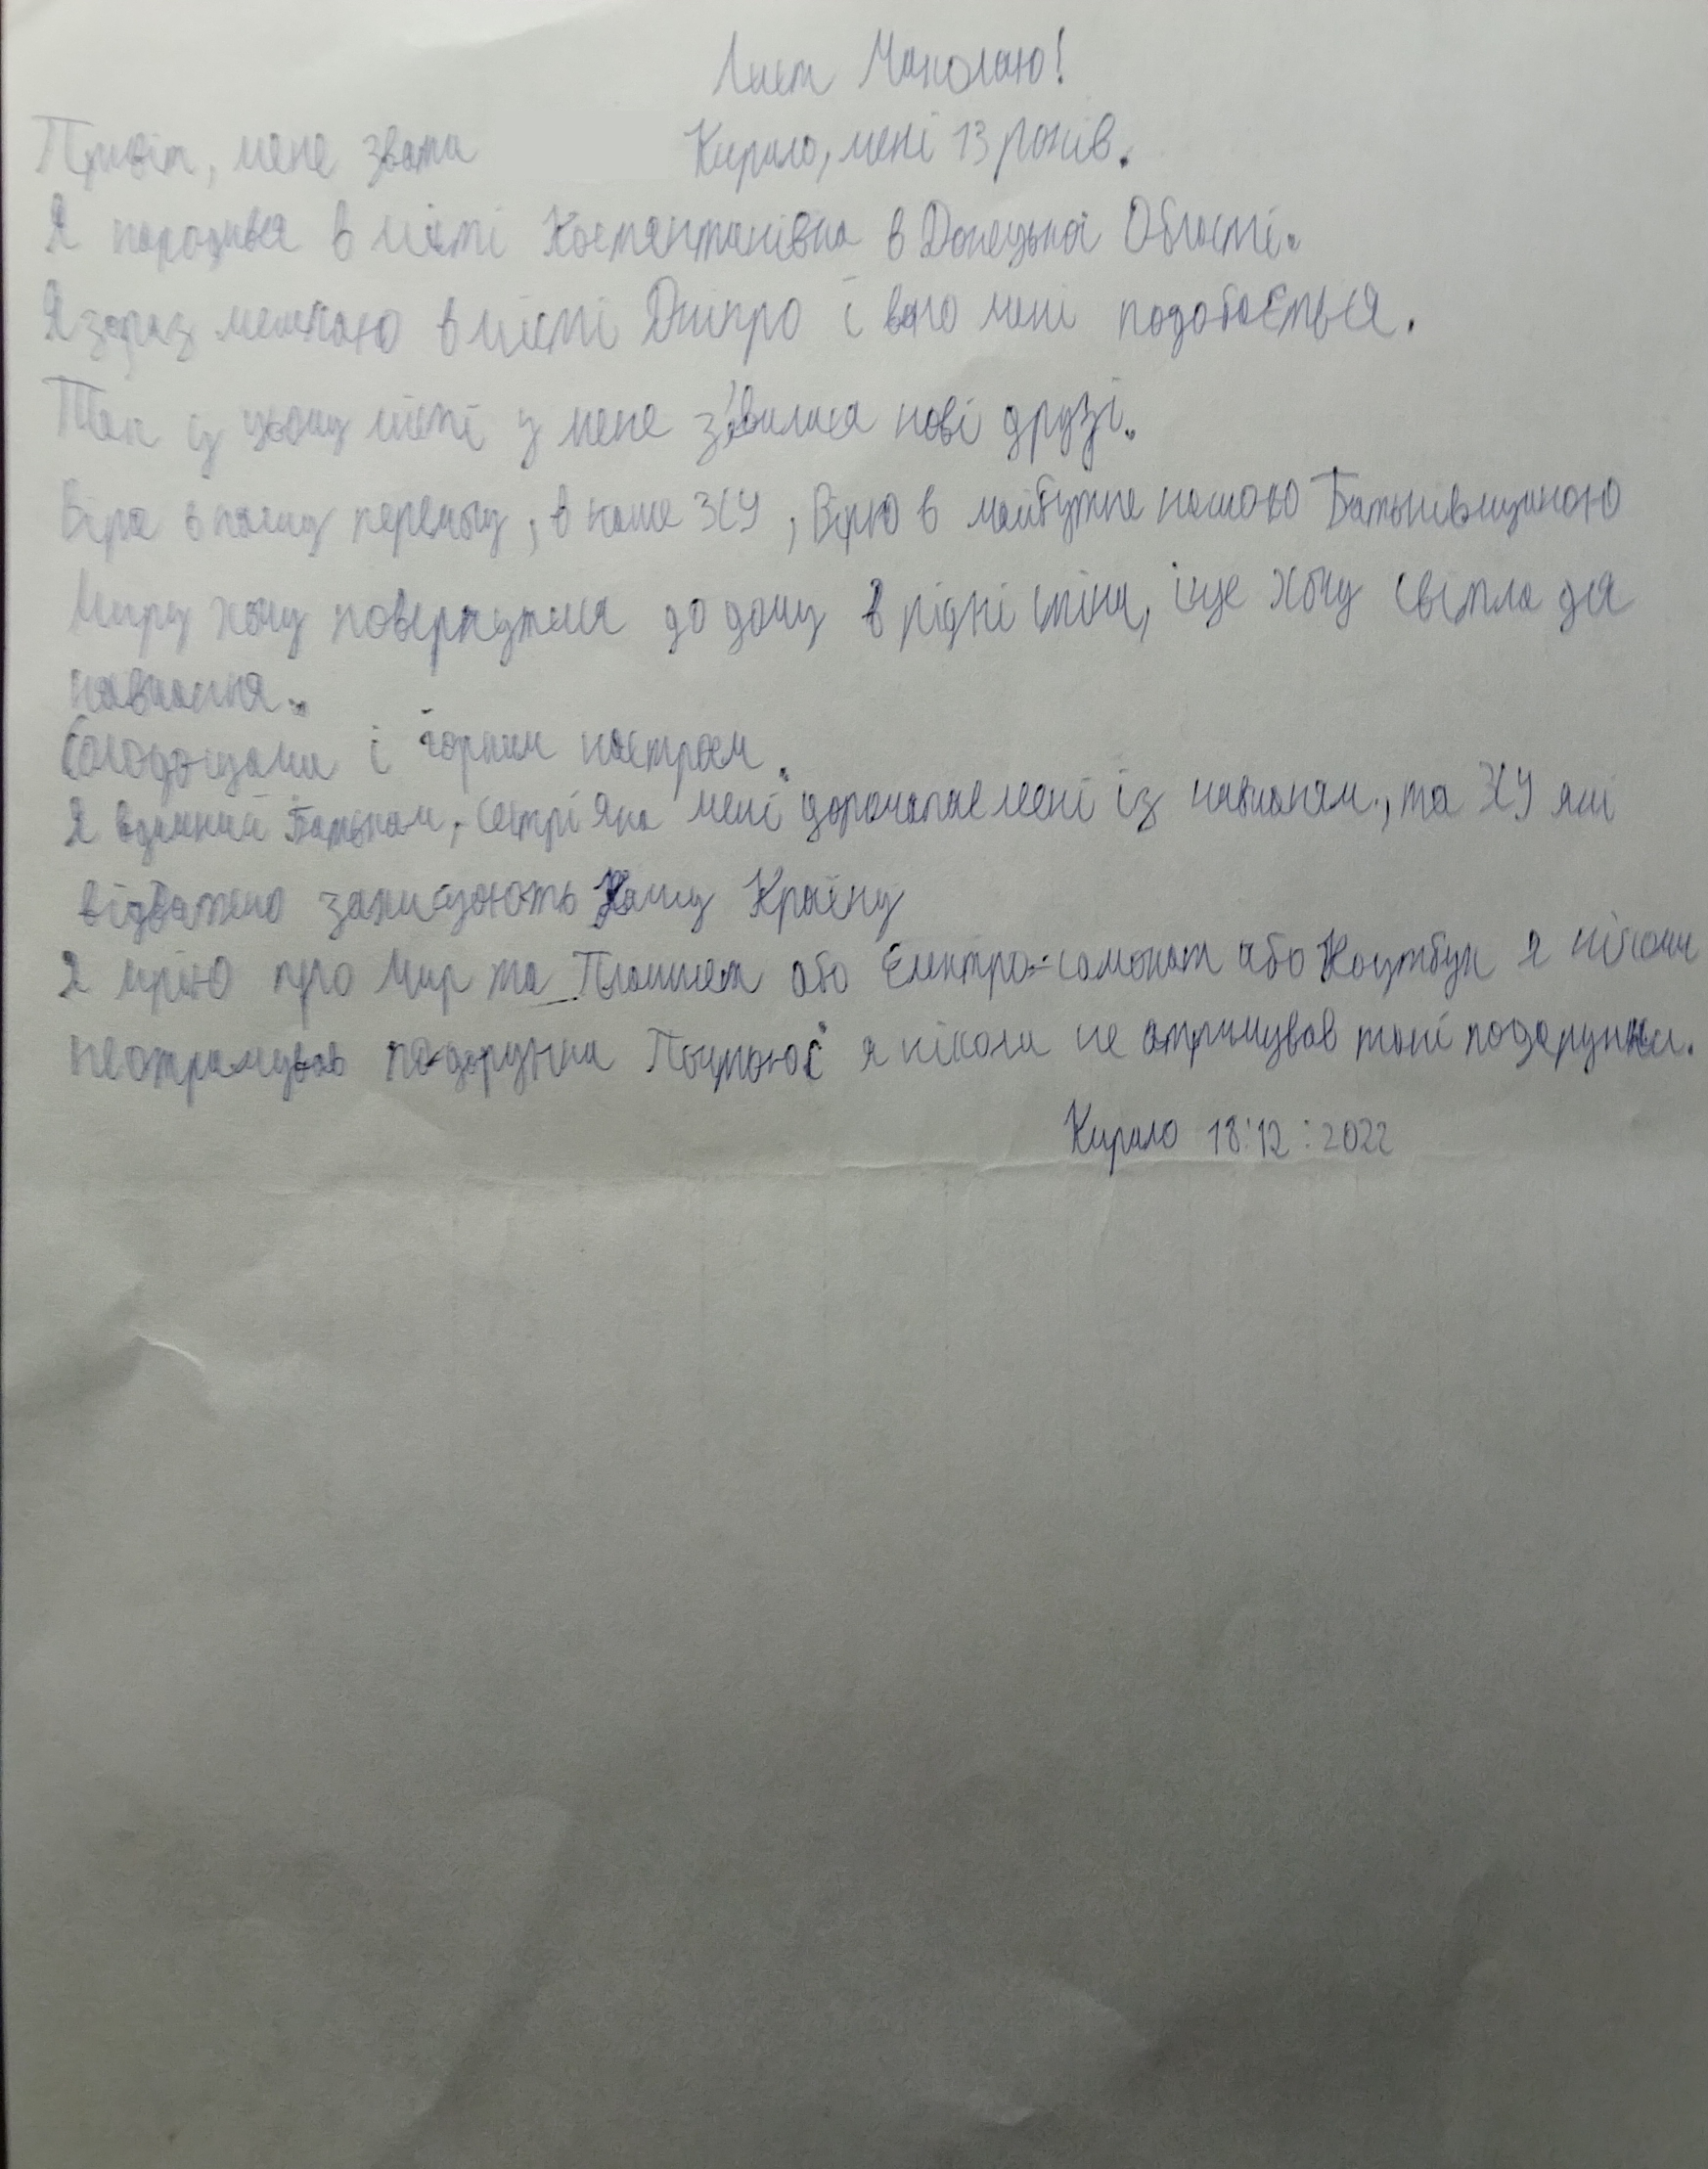 Лист Миколаю!
Привіт, мене звати Кирило, мені 13 років.
Я народився в місті Костянтинівка в Донецької Області.
Я зараз мешкаю в місті Дніпро і воно мені подобається.
Так із цьому місті у мене з'явилися нові друзі.
Віра в нашу перемогу, в наше ЗСУ, Вірю в майбутнє нашою Батьківщиною
Миру хочу повернутися до дому в рідні стіни, іще хочу світла для
навчання.
Солодощами і гарним настроєм.
Я вдячний Батькам, сестрі яка мені допомагає мені із навчаням, та ЗСУ які
відважено захищають Нашу Країну
Я мрію про Мир та Планшет або Електро-самокат або Ноутбук я ніколи
неотримував подарунки Поштою є я ніколи не отримував такі подарунки.
Кирило 18:12:2022